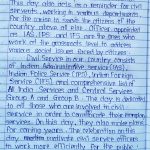 This day also acts as a reminder for civil
servants, working in various departments
for the cause to serve the citizens of the
country above all else. Officers appointed
as IAS, IPS and IFS are the ones who
work at the grassroots level to address
various social issues faced by citizens.
Civil Service in our country consists
of Indian Administrative Service (IAS),
Indian Police Service (IPS), Indian Foreign
Service (IFS) and comprehensive list of
All India Services and Central Services
Group A and Group B. This day is dedicated
to all those who are involved in civil
service in order to contribute their
services. On this day, they also make plans
for coming years. The celebration on this
day motivate civil services officers
to work more efficiently for the public